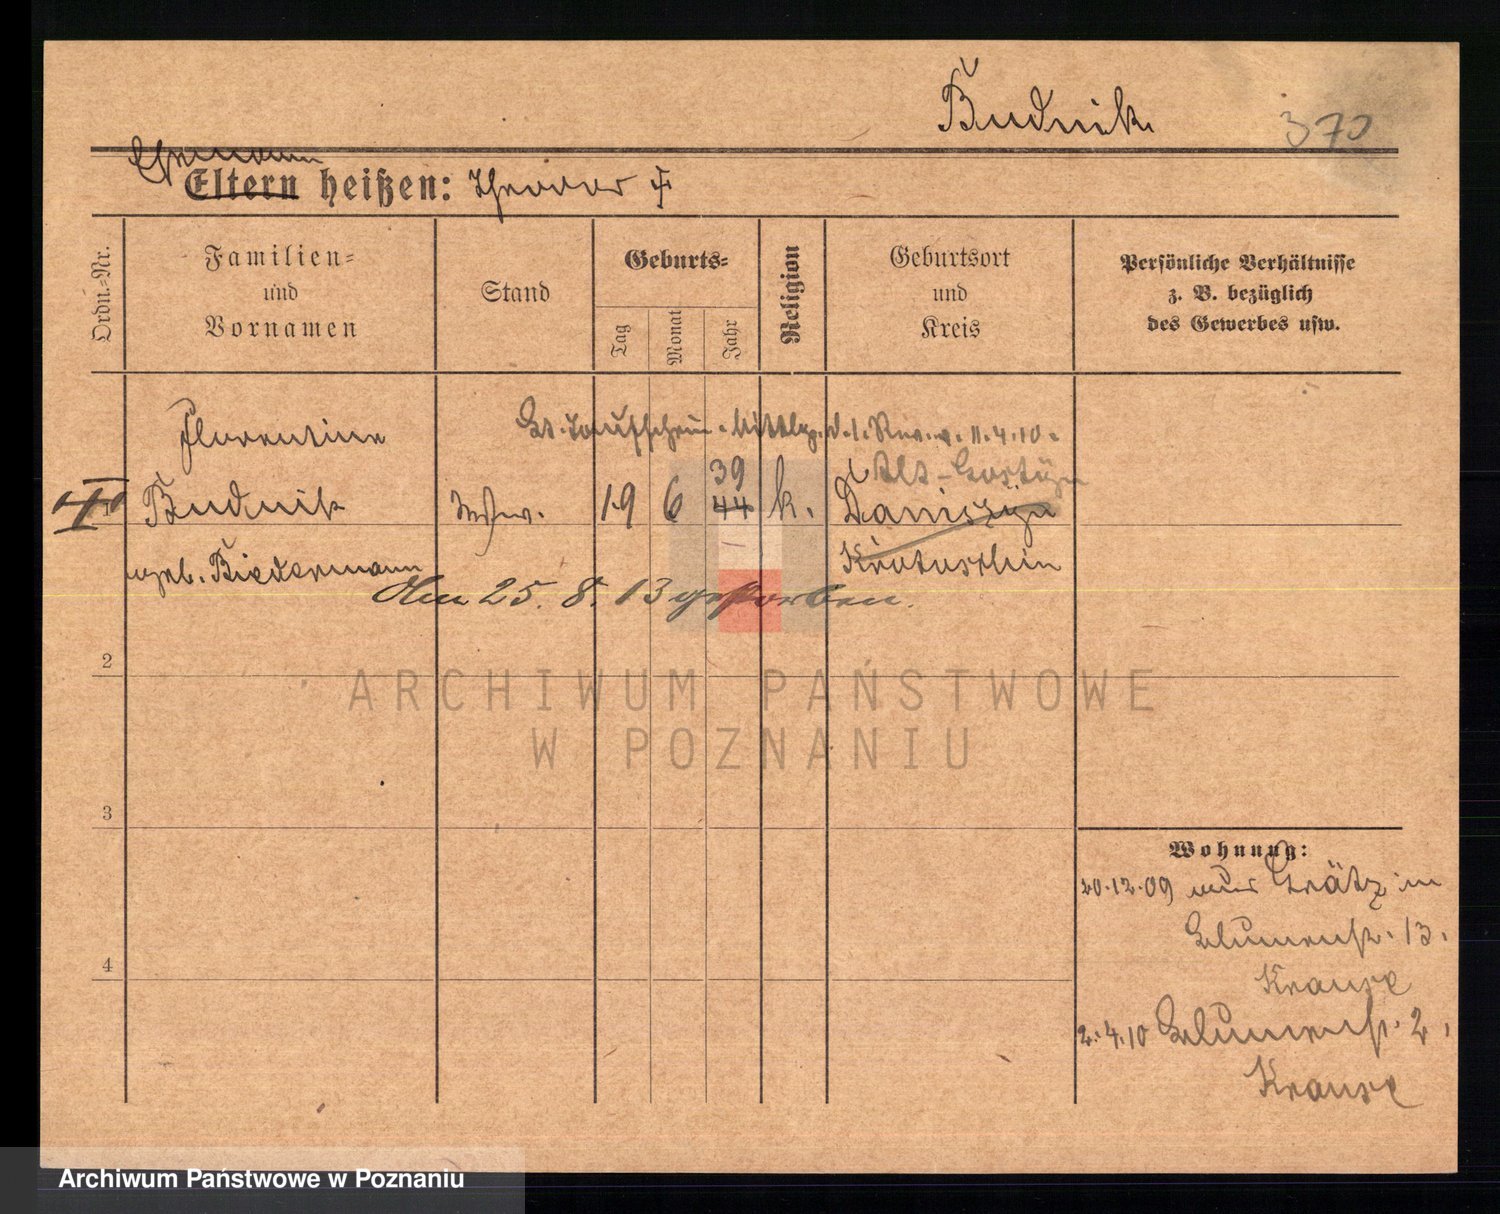 Budnik
370
Ehemann
Eltern heißen: Theodor †
Ordn.-Nr.
Familien-
und
Vornamen
Stand
Geburts-
Tag
Monat
Jahr
Religion
Geburtsort
und
Kreis
Persönliche Verhältnisse
z. B. bezüglich
des Gewerbes usw.
Florentine
Taufschein d. 1. Rev. v. 11.4.10.
39
Alt-Gostyn
Budnik
Ww. 19 6 44 k. Daniszyn
geb. Biedermann
Krotoschin
Am 25. 8. 13 gestorben.
2
ARCHIWUM PAŃSTWOWE
W POZNANIU
3
Wohnung:
20.12.09 aus Grätz in
Blumenstr. 13.
Krause
4
2.4.10 Blumenstr. 2,
Krause
Archiwum Państwowe w Poznaniu